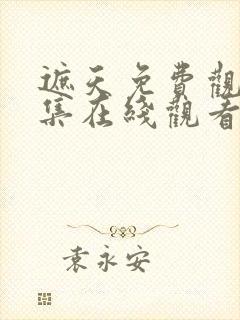 遮天免費觀
集在綫觀看
袁永安